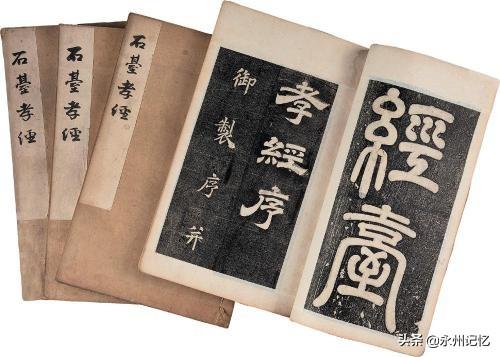 石臺孝經
石臺孝經
石臺孝經
經臺
孝經序
御製序并
头条 @永州记忆